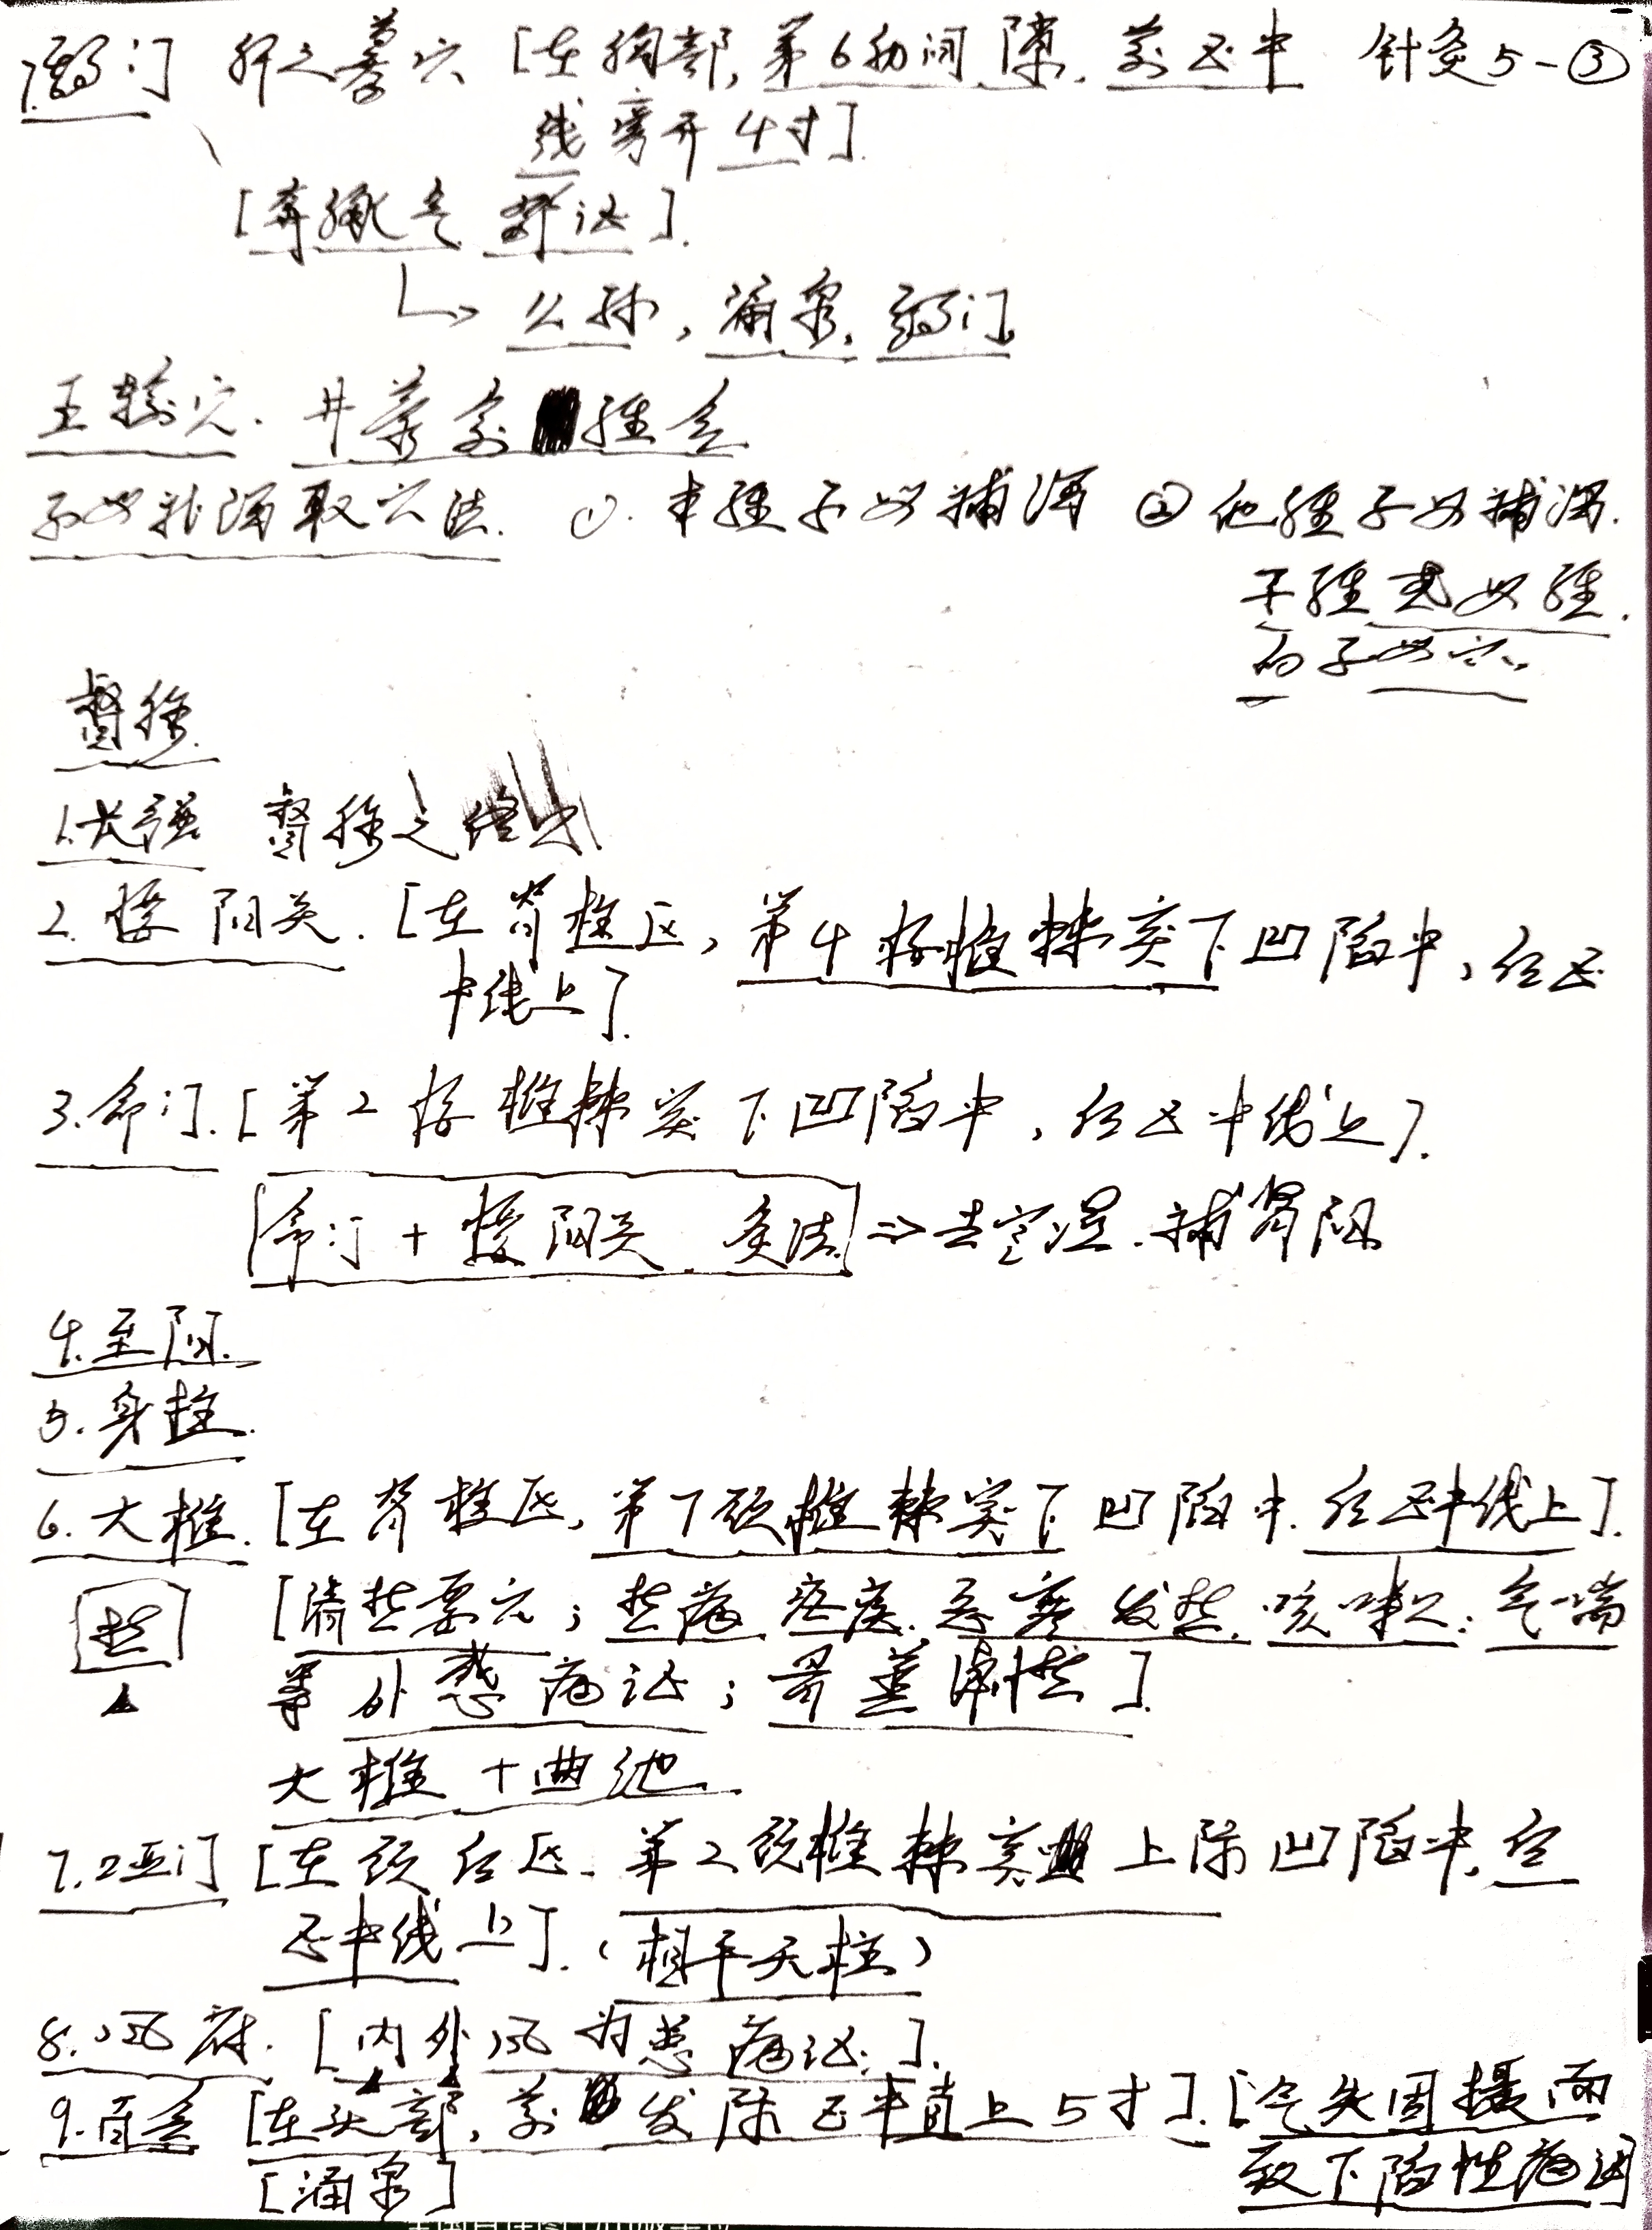 7.期门 肝之募穴 [在胸部,第6肋间隙.前正中 针灸5-③
线旁开4寸].
[奔豚气 病证].
↳ 公孙,涌泉.期门
五输穴. 井荥输经合
子母补泻取穴法. ①.本经子母补泻 ②他经子母补泻.
子经或母经.
的子母穴.
督脉.
1.长强 督脉之络穴
2.腰阳关.[在脊柱区,第4腰椎棘突下凹陷中,后正
中线上].
3.命门.[第2腰椎棘突下凹陷中,后正中线上].
命门+腰阳关 灸法 ⇒去寒湿.补肾阳
4.至阳.
5.身柱.
6.大椎.[在脊柱区,第7颈椎棘突下凹陷中.后正中线上].
热 [清热要穴;热病 疟疾.恶寒发热.咳嗽.气喘
等外感病证;骨蒸潮热].
大椎+曲池.
7.哑门 [在颈后区.第2颈椎棘突 上际凹陷中,后
正中线上].(相平天柱)
8.风府.[内外风为患病证.].
9.百会 [在头部,前发际正中直上5寸].[气失固摄而
致下陷性病证
[涌泉]